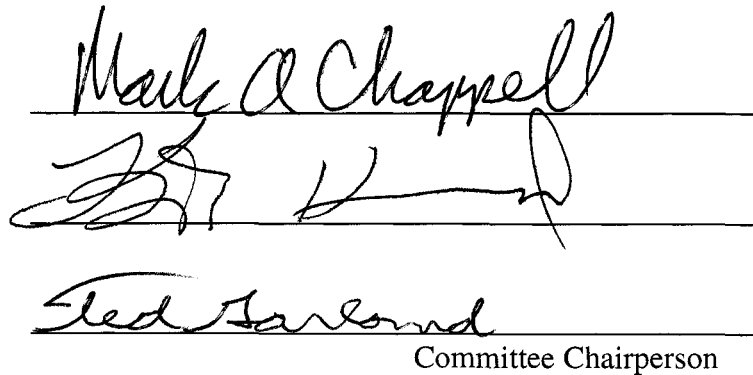 Mark A Chappell
Ted Garland
Committee Chairperson